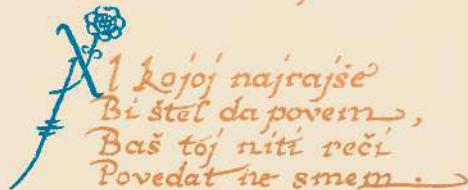 Al kojoj najrajše
Bi štel da povem,
Baš toj niti reči
Povedat ne smem.